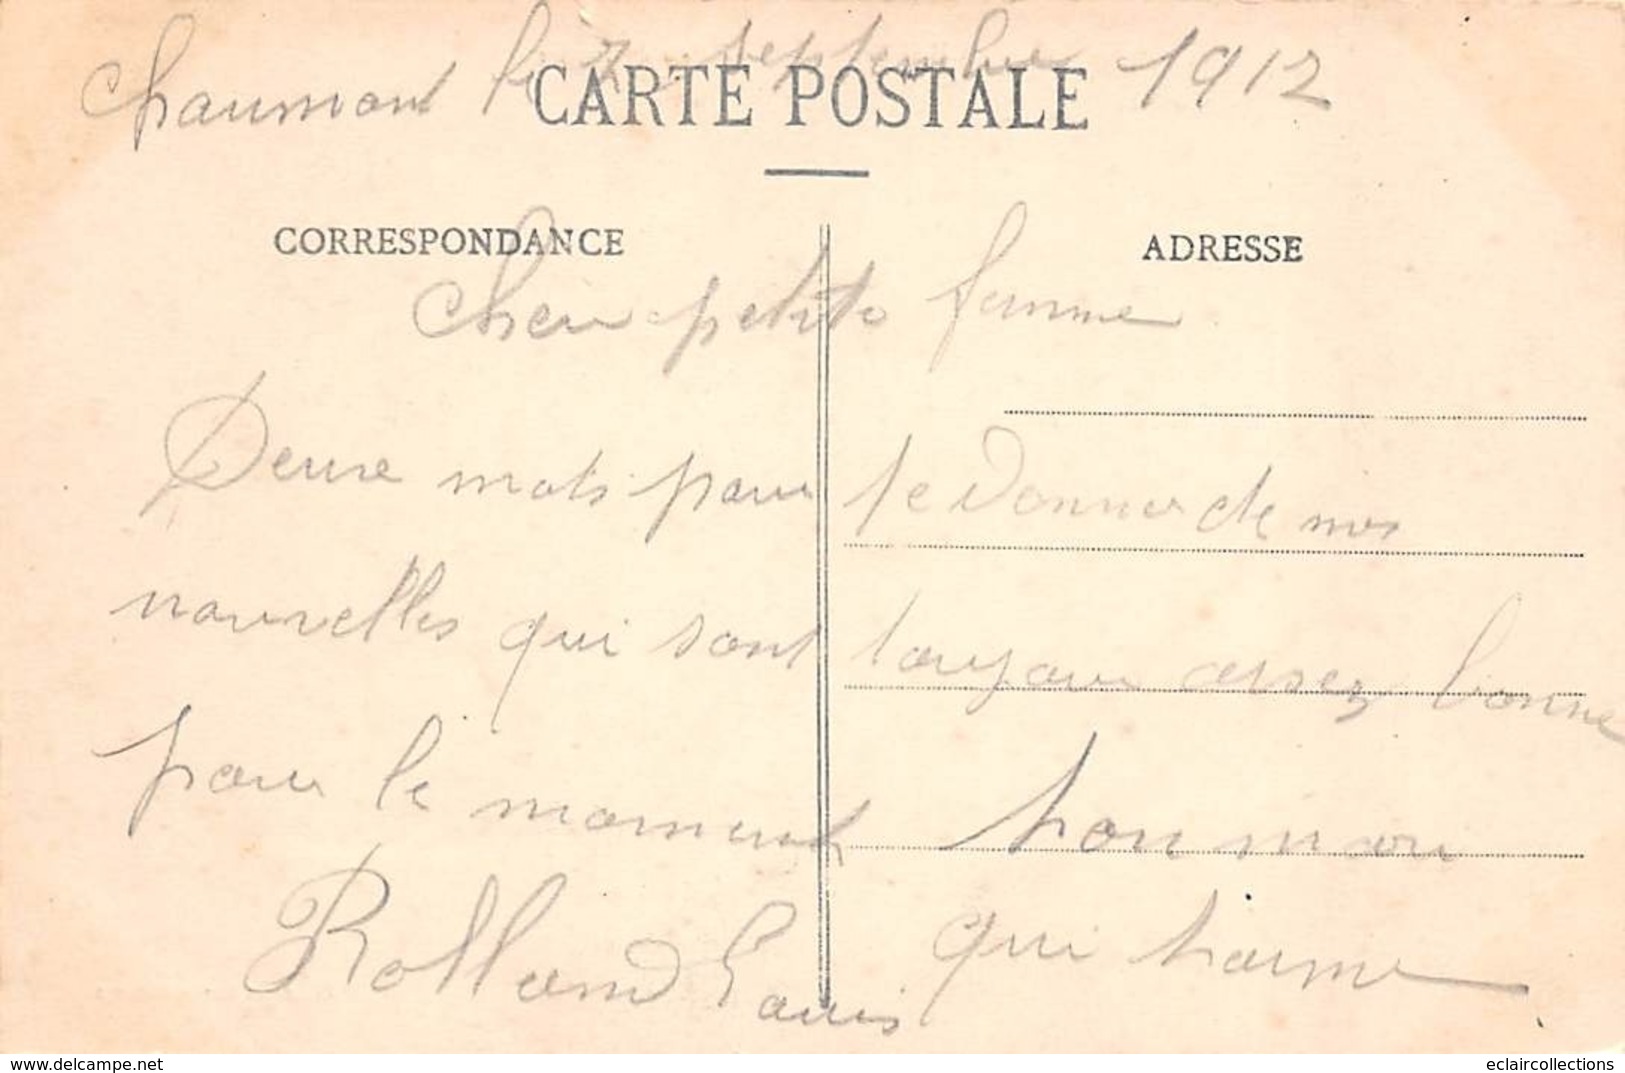 Chaumont le 7 septembre 1912
CARTE POSTALE
CORRESPONDANCE
ADRESSE
Cher petite femme
Deux mots pour te donner de mes
nouvelles qui sont toujour assez bonne
pour le moment ton mari
Rolland Louis qui taime
delcampe.net
eclaircollections